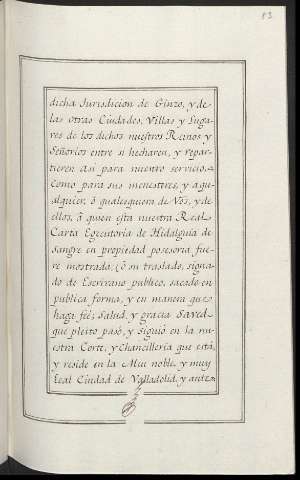 53
dicha Jurisdicion de Ginzo, y de
las otras Ciudades, Villas y Luga
res de los dichos nuestros Reinos y
Señorios entre si hecharen, y repar
tieren asi para nuestro servicio,
como para sus menesteres, y a qu
alquier, ó qualesquiera de Vos, y de
ellos, á quien esta nuestra Real
Carta Egecutoria de Hidalguia de
sangre en propiedad posesoria fue
re mostrada, (ó su traslado, signa
do de Escrivano publico, sacado en
publica forma, y en manera que
haga feé; Salud, y gracia Saved
que pleito pasó, y siguió en la nu
estra Corte, y Chancilleria que está,
y reside en la Mui noble, y muy
Leal Ciudad de Valladolid, y ante